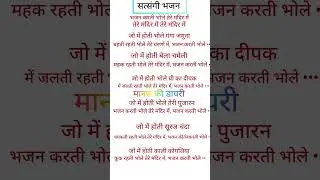 सत्संगी भजन
भजन करती भोले तेरे मंदिर में
तेरे मंदिर में तेरे मंदिर में
जो में होती भोले गंगा जमुना
बहती रहती भोले तेरे चरणों में, भजन करती भोले ••
जो में होती बेला चमेली
महक रहती भोले तेरे मंदिर में, भजन करती भोले ••
जो में होती भोले घी का दीपक
में जलती रहती भोले तेरे मंदिर में, भजन करती भोले ••
मानस की डायरी
जो में होती भोले तेरी पुजारन
भजन करती भोले तेरे मंदिर में, भजन करती भोले ••
जो में होती सूरज चंदा
चमकती रहती भोले तेरे मंदिर में, भजन करती भोले ••
जो में होती काली कोयलिया
कुक रहती भोले तेरे मंदिर में, भजन करती भोले ••
जो में होती भोले घी का दीपक
में जलती रहती भोले ते
जो में होती भोले तेरी पुजारन
भजन करती भोले